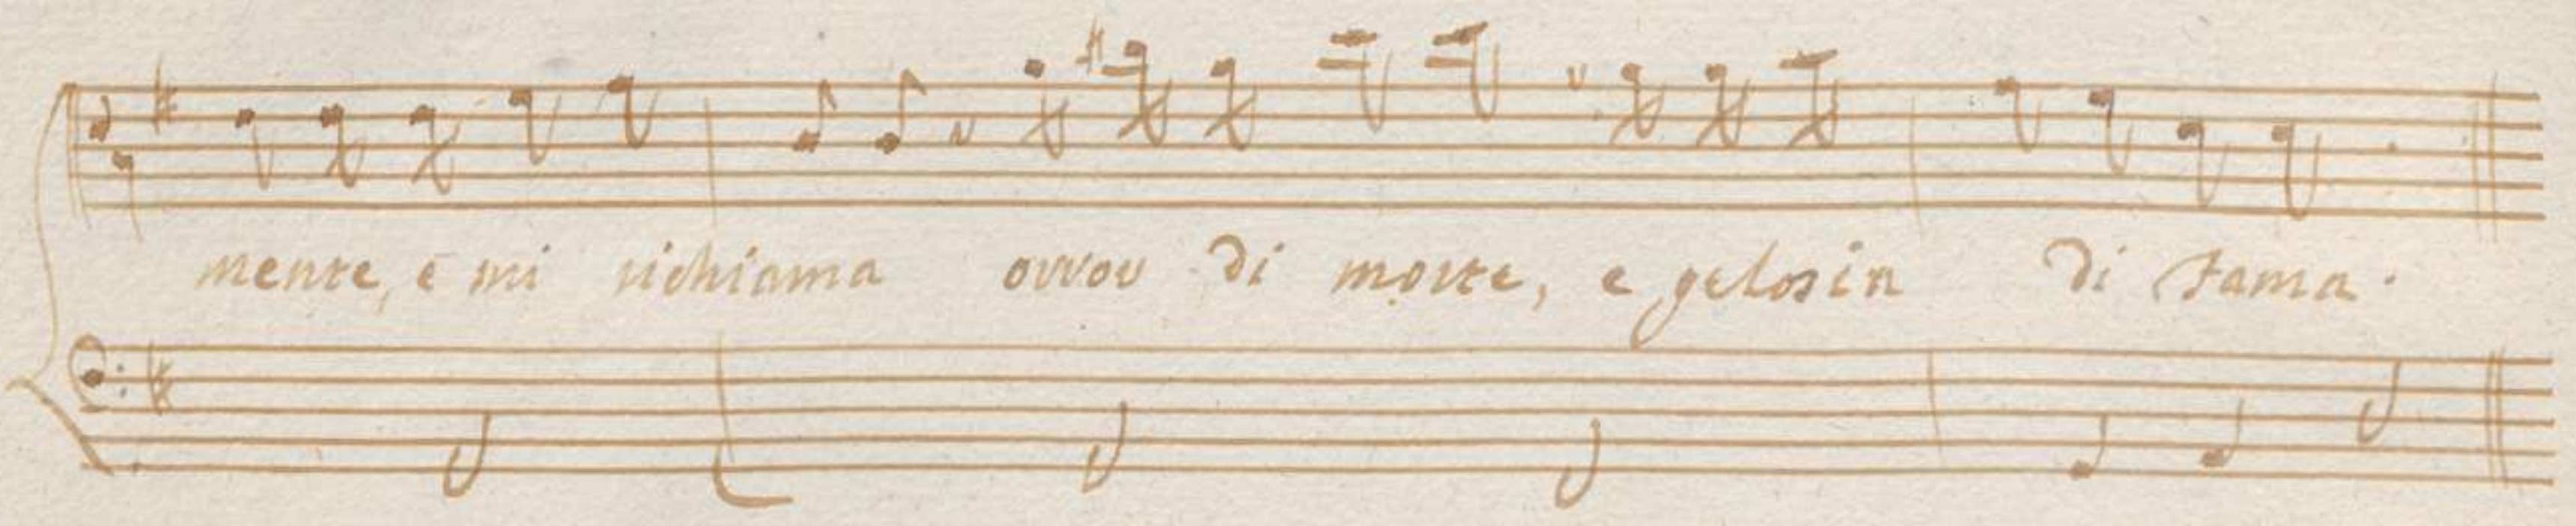 mente, e mi richiama orror di morte, e gelosia di fama.